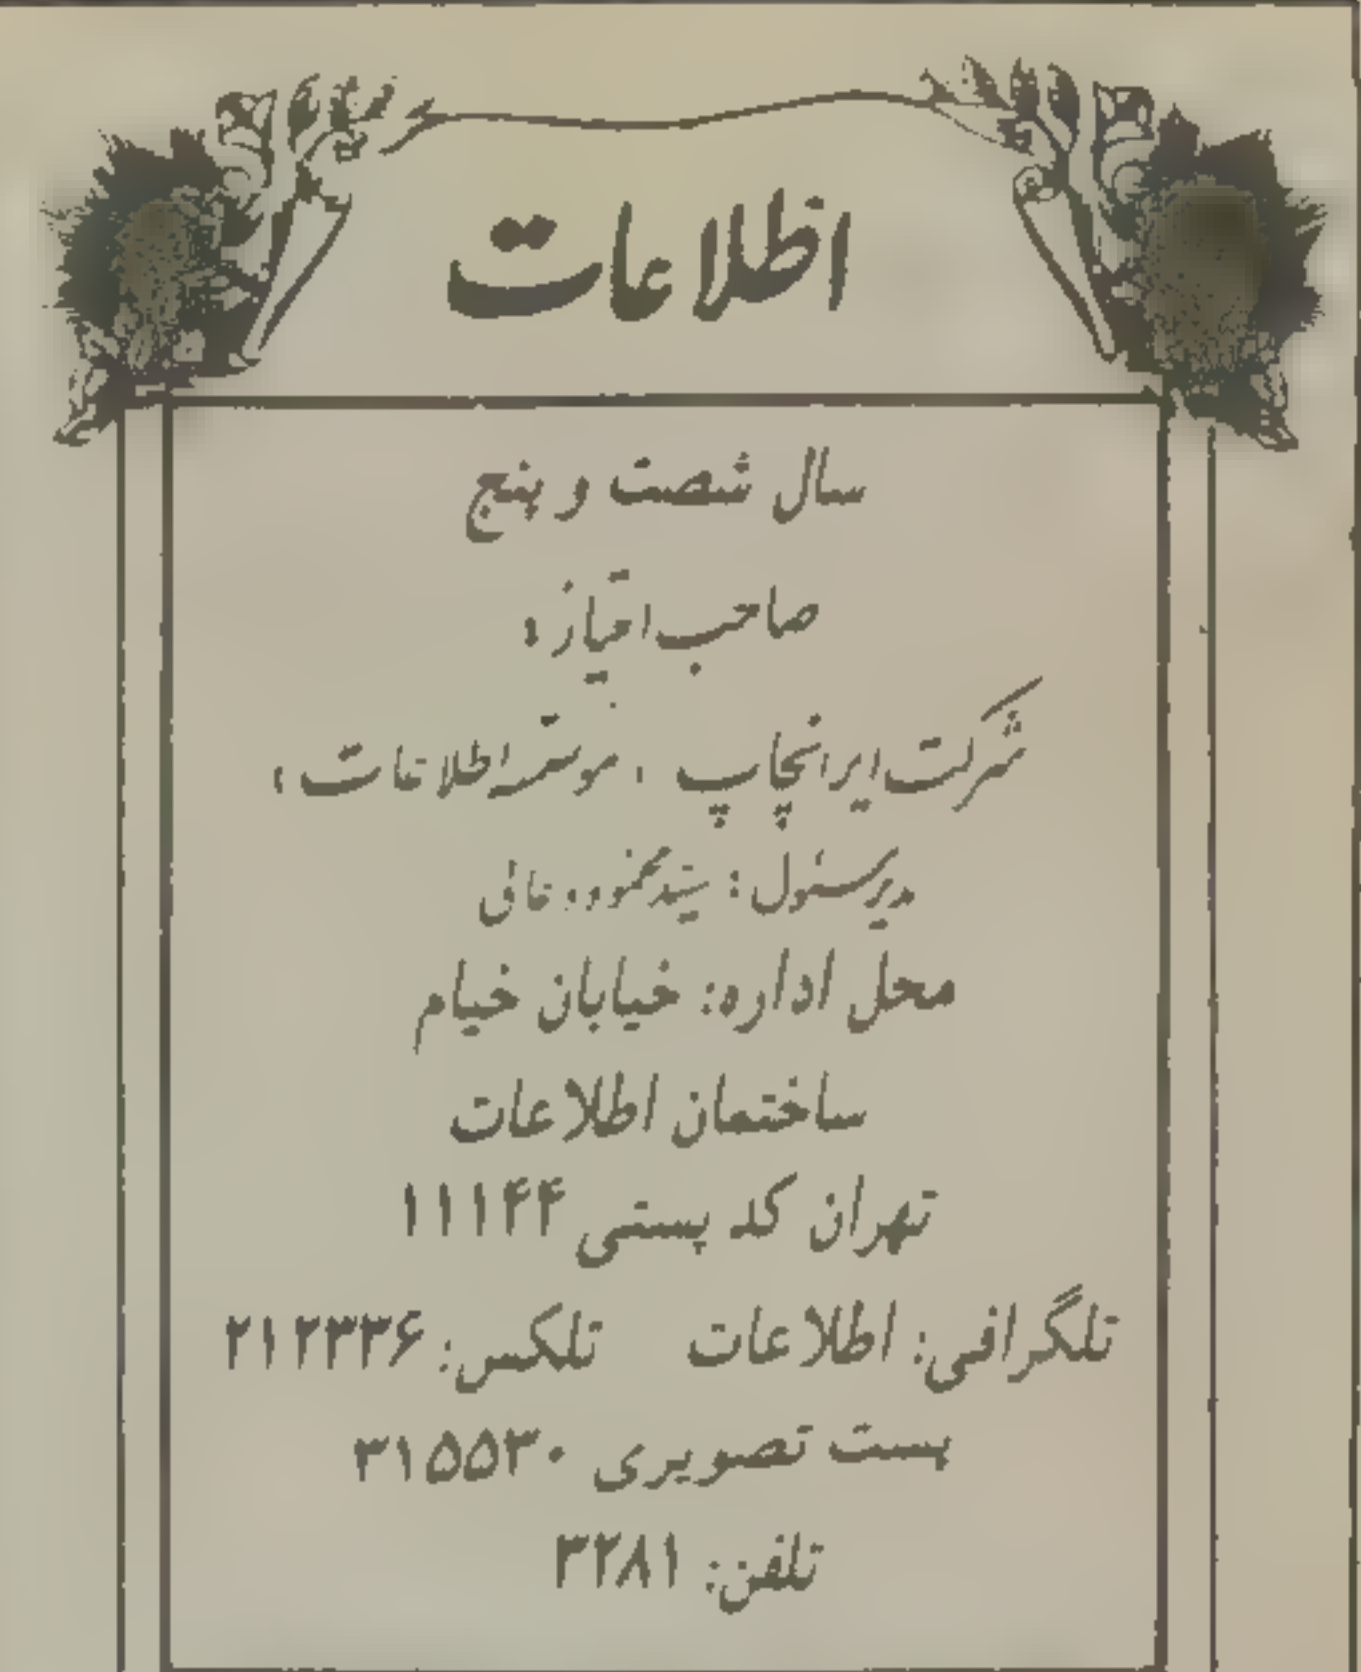 اطلاعات
سال شصت و پنج
صاحب امتیاز:
شرکت ایرانچاپ «موسسه اطلاعات»
مدیر مسئول: سید محمود دعائی
محل اداره: خیابان خیام
ساختمان اطلاعات
تهران کد پستی ۱۱۱۴۴
تلگرافی: اطلاعات تلکس: ۲۱۲۳۳۶
پست تصویری ۳۱۵۵۳۰
تلفن: ۳۲۸۱